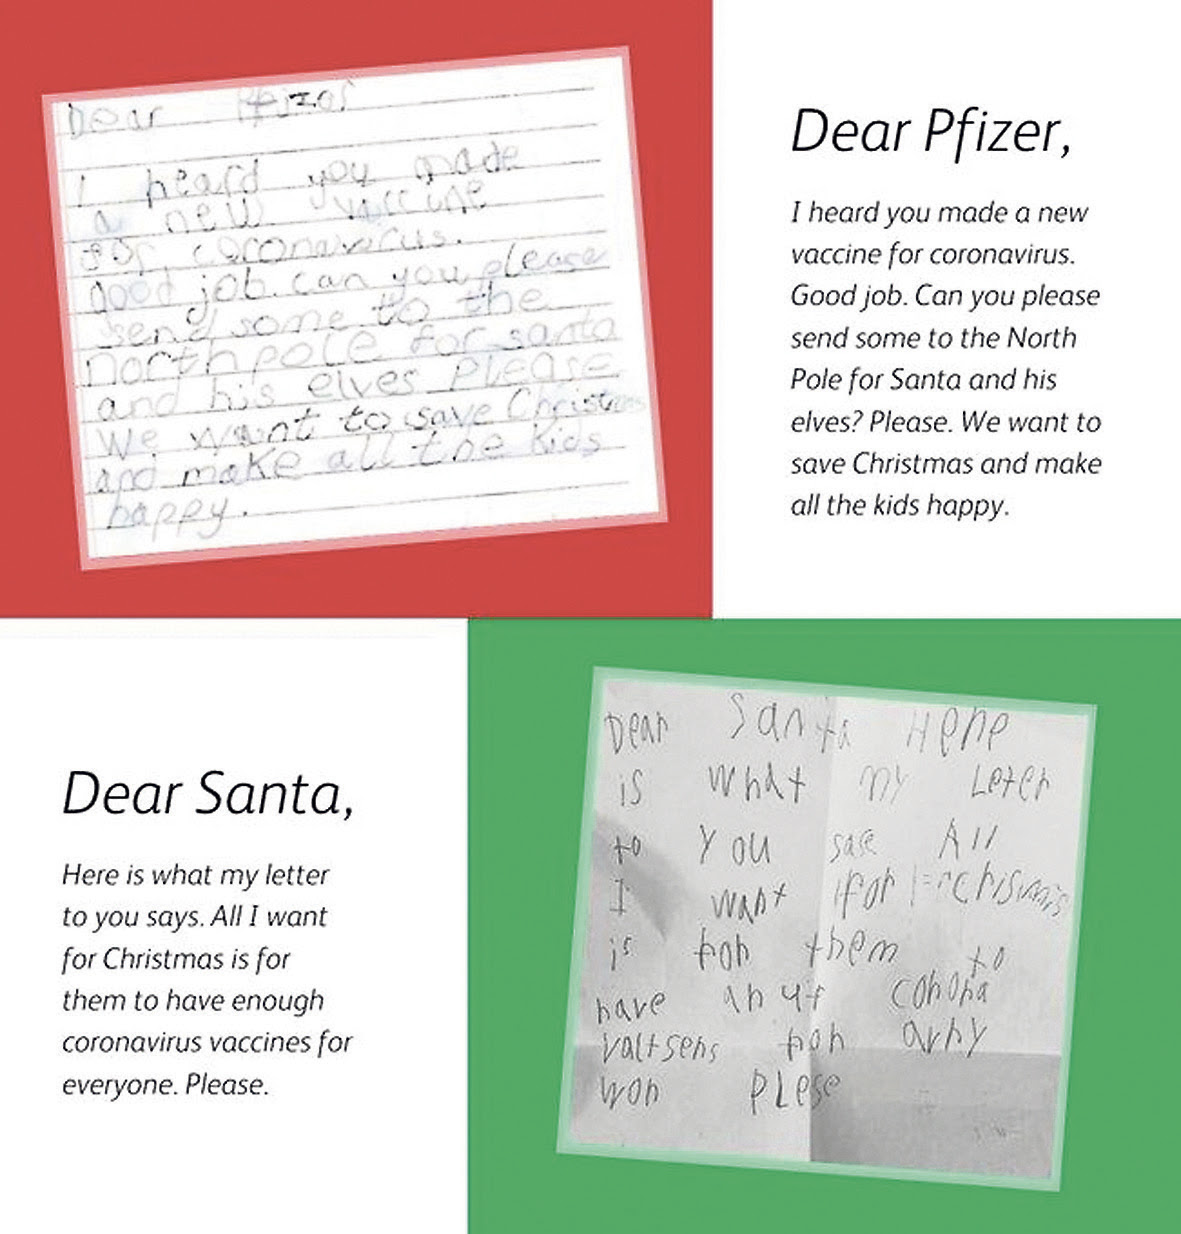 Dear Pfizer
I heard you made
a new vaccine
for coronavirus.
good job. can you please
send some to the
north pole for santa
and his elves Please.
We want to save Christmas
and make all the kids
happy.
Dear Pfizer,
I heard you made a new
vaccine for coronavirus.
Good job. Can you please
send some to the North
Pole for Santa and his
elves? Please. We want to
save Christmas and make
all the kids happy.
Dear Santa,
Here is what my letter
to you says. All I want
for Christmas is for
them to have enough
coronavirus vaccines for
everyone. Please.
Dear Santa Here
is what my Leter
to you sase All
I want for chrismis
is for them to
have anuf corona
valtsens for avry
won PLese